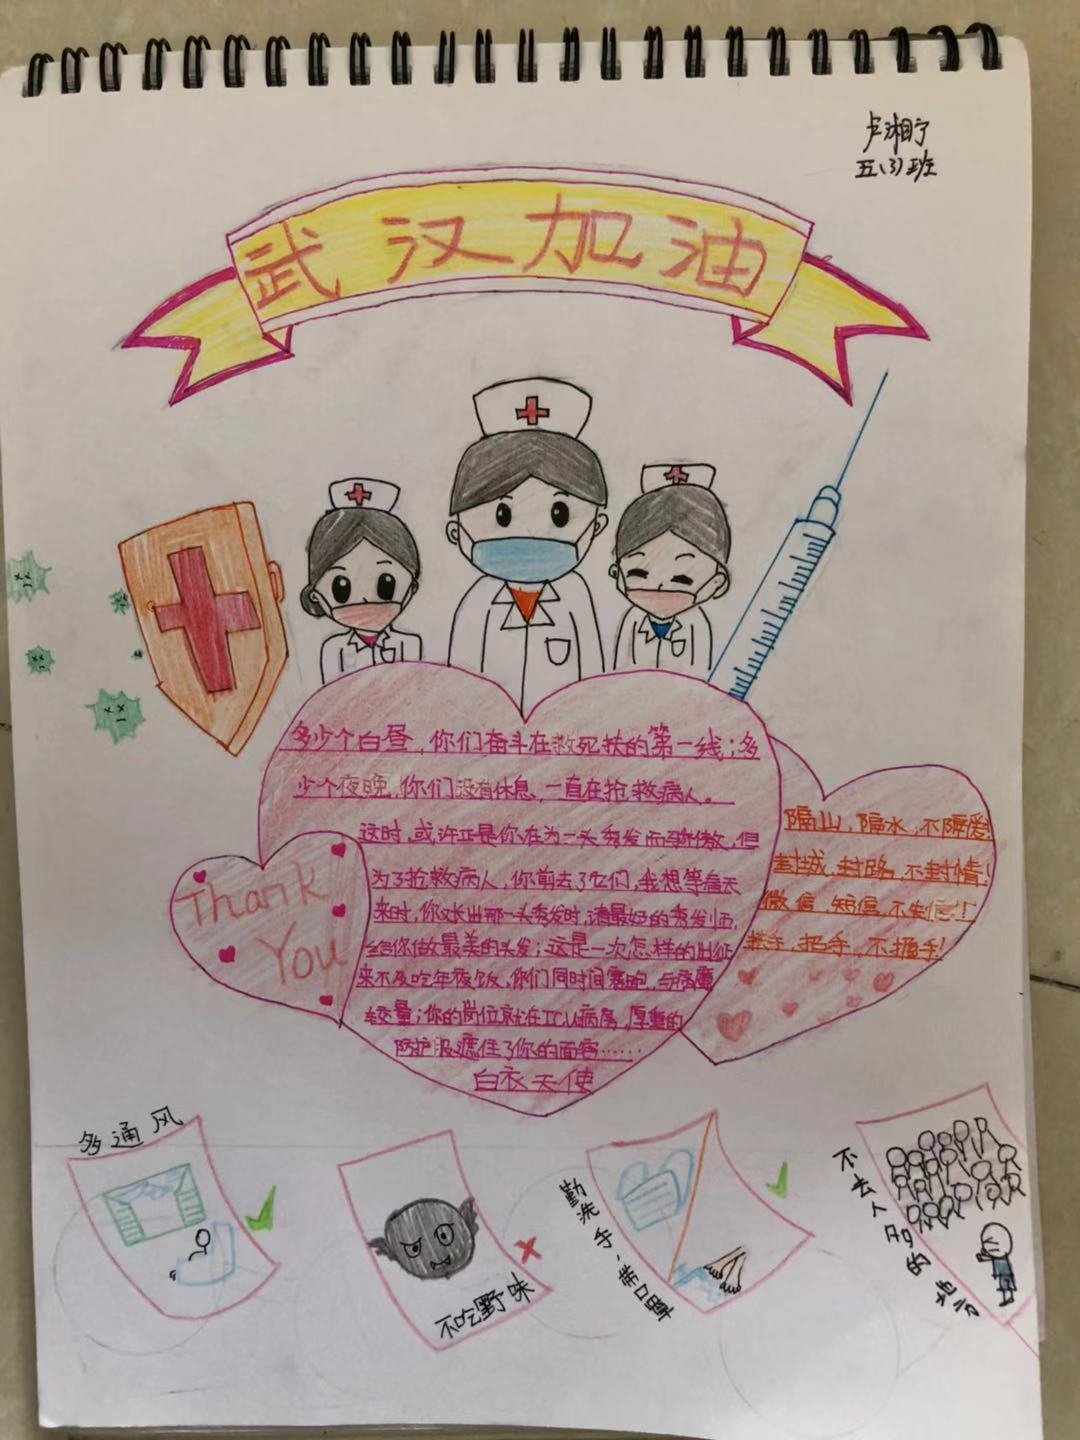 卢湘宁
五(3)班
武汉加油
多少个白昼，你们奋斗在救死扶的第一线；多
少个夜晚，你们没有休息，一直在抢救病人。
这时，或许正是你在为一头秀发而骄傲，但
为了抢救病人，你前去了它们，我想等春天
来时，你长出那一头秀发时，请最好的秀发师，
给你做最美的头发；这是一次怎样的出征
来不及吃年夜饭，你们同时间赛跑，与病魔
较量；你的岗位就在ICU病房，厚重的
防护服遮住了你的面容……
白衣天使
Thank
You
隔山，隔水，不隔爱！
封城，封路，不封情！
微信，短信，不失信！
手，把手，不握手！
多通风
不吃野味
勤洗手、带口罩
不去人多的地方